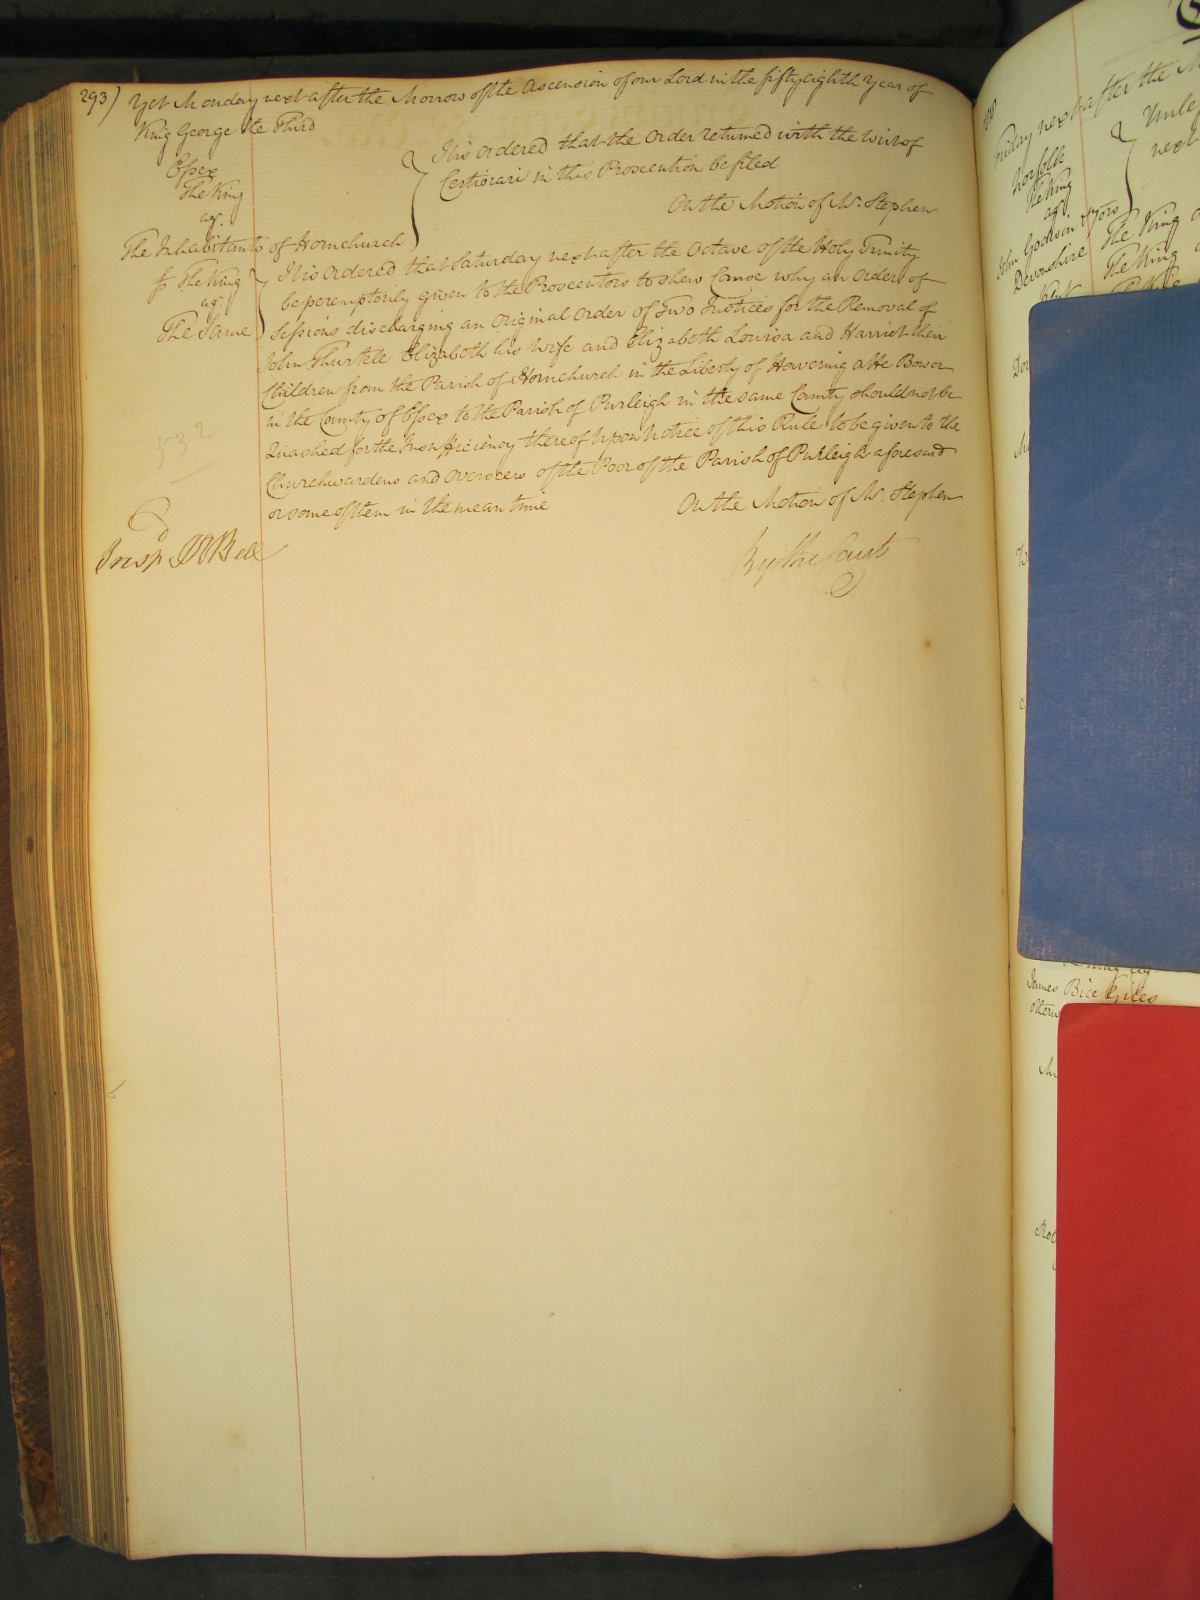 293)
Yet Monday next after the Morrow of the Ascension of our Lord in the fifty eighth Year of
King George the Third
Essex
The King
agt.
The Inhabitants of Hornchurch
It is ordered that the Order returned with the Writ of
Certiorari in this Prosecution be filed
On the Motion of Mr. Stephen
The King
agt.
The Same
It is Ordered that Saturday next after the Octave of the Holy Trinity
be peremptorily given to the Prosecutors to shew Cause why an Order of
Sessions discharging an Original Order of Two Justices for the Removal of
John Thurtele Elizabeth his Wife and Elizabeth Louisa and Harriot their
Children from the Parish of Hornchurch in the Liberty of Havering atte Bower
in the County of Essex to the Parish of Purleigh in the same County should not be
Quashed for the Insufficiency thereof Upon Notice of this Rule to be given to the
Churchwardens and Overseers of the Poor of the Parish of Purleigh aforesaid
or some of them in the mean time
On the Motion of Mr. Stephen
532
By the Court
Friday next after the
Norfolk
The King
agt.
John Godwin
Devonshire
Unle
next
The King
The King
James Bice Giles